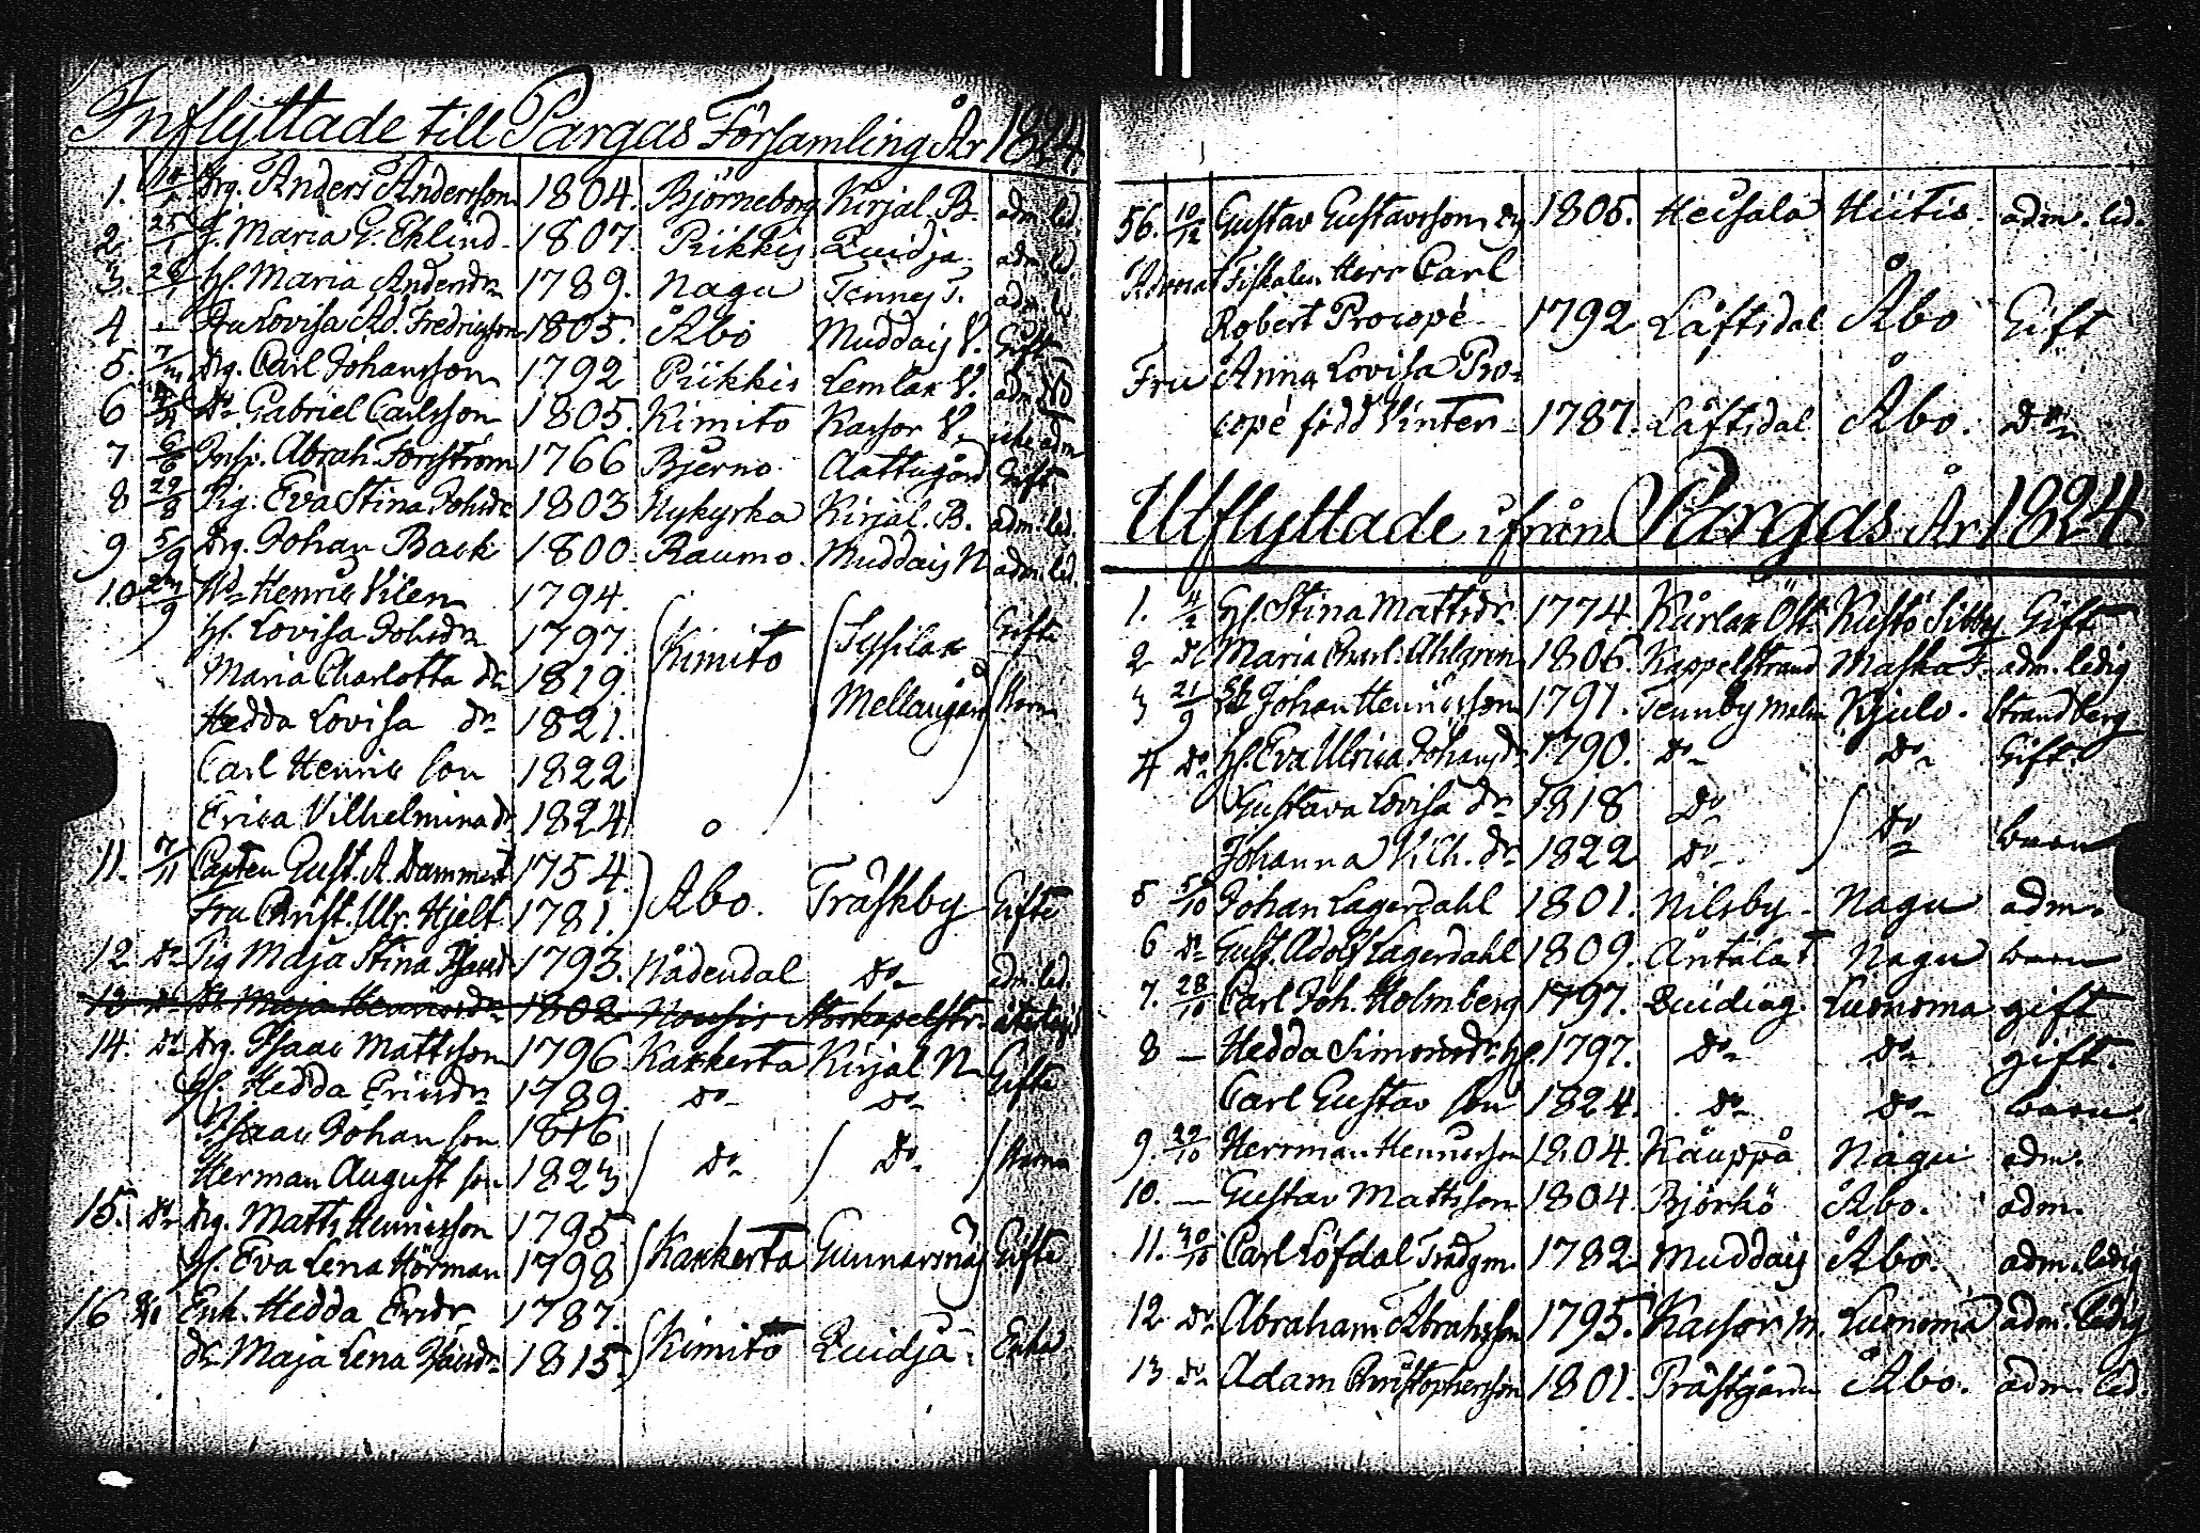 Inflyttade till Pargas Församling År 1824
1. Drg. Anders Andersson 1804. Björneborg Kirjal. B. adm. led.
2. 25/1 J. Maria G. Eklind 1807. Piikkis Quidja adm. led.
3. Hs. Maria Andersdr 1789. Nagu Tennes T.
4 – Fru Lovisa Ad. Fredricsson 1805. Åbo Muddais V. Gift
5. Drg. Carl Johansson 1792 Piikkis Lemlax V.
6 Do Gabriel Carlsson 1805. Kimito Kassor V. icke adm
7 Insp. Abrah. Forsström 1766 Bjerno Aattugård Gift
8 29/8 Pig. Eva Stina Johsdr 1803 Nykyrka Kirjal. B. adm. led.
9 5/9 Drg. Johan Back 1800. Raumo. Muddais N adm. led.
10 Henric Vilen 1794.
Hs. Lovisa Johsdr 1797. Kimito Sysilax Gifte
Maria Charlotta dr 1819. Mellangård Barn
Hedda Lovisa dr 1821.
Carl Henric son 1822
Erica Vilhelmina dr 1824
11. Capten Gust. A. Dammert 1754. Åbo. Träskby Gifte
Fru Christ. Ulr. Hjelt 1781.
12 Do Pig Maja Stina 1793. Nådendal Do adm. led.
13 Do Do Maja Henricsdr 1802 Nousis
14. Do Drg. Isaac Mattsson 1796 Kakkerta Kirjal N Gifte
Hs. Hedda Ericsdr 1789. Do Do
Isaac Johan son 1816
Herman August son 1823 Do Do Barn
15. Do Drg. Matts Henricsson 1795.
Hs. Eva Lena Hörman 1798 Kakkerta Gunnarsnäs Gifte
16 Do Enk. Hedda Ersdr 1787. Kimito Quidja Enka
dr Maja Lena 1815.
56. 10/12 Gustav Gustavsson 1805. Heisala Hiitis adm. led.
Advocat Fiskalen Herr Carl
Robert Procopé 1792 Läftsdal Åbo Gift
Fru Anna Lovisa Pro-
copé född Vinter 1787. Läftsdal Åbo. Do
Utflyttade ifrån Pargas År 1824
1. 4/2 Hs. Stina Mattsdr 1774. Kårlax Öst. Kustö Sitby Gift
2 Do Maria Charl. Ahlgren 1806. Kappelstrand Masku adm. ledig
3 21/9 Johan Henricsson 1791. Tennby Malm Kjulo. Strandberg
4 Do Hs. Eva Ulrica Johansdr 1790. Do Do Gift.
Gustava Lovisa dr 1818 Do Do barn
Johanna Vilh. dr 1822 Do
5 5/10 Johan Lagerdahl 1801. Nilsby Nagu adm.
6 Do Gust. Adolf Lagerdahl 1809. Antala T Nagu barn
7. 28/10 Carl Joh. Holmberg 1797. Quidiag. Luonoma gift
8 – Hedda Simonsdr Hs. 1797. Do Do gift.
Carl Gustav son 1824. Do Do barn.
9. 29/10 Herrman Henricsson 1804. Käuppå Nagu adm.
10. – Gustav Mattsson 1804. Björkö Åbo. adm.
11. 30/10 Carl Löfdal Trädgm. 1782. Muddais Åbo. adm. ledig
12 Do Abraham Abrahsson 1795. Kassor M. Luonoma adm. ledig
13 Do Adam Christophersson 1801. Prästgården Åbo. adm. led.